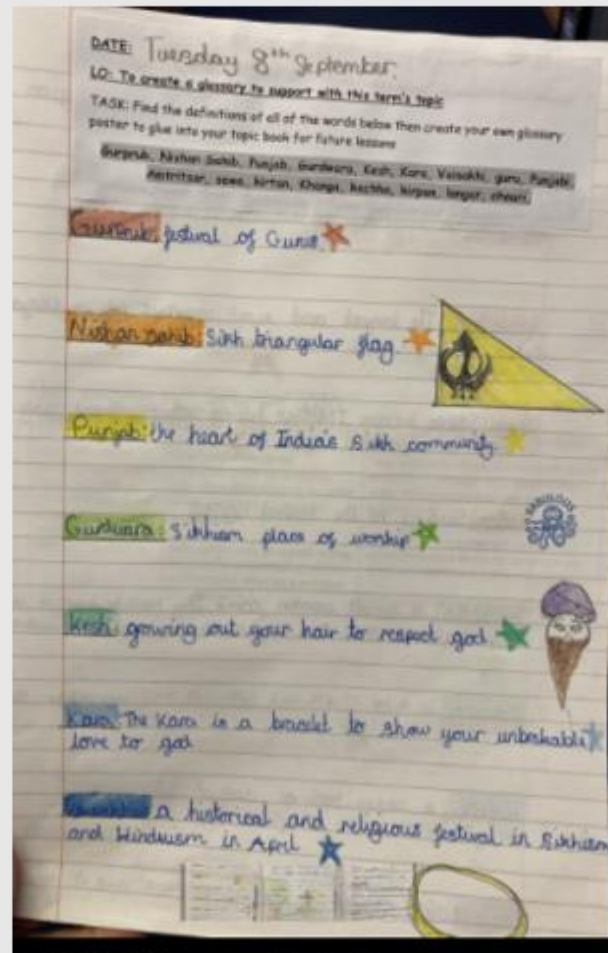 DATE: Tuesday 8th September.
LO: To create a glossary to support with this term's topic
TASK: Find the definitions of all of the words below then create your own glossary
poster to glue into your topic book for future lessons
Gurpurb, Nishan Sahib, Punjab, Gurdwara, Kesh, Kara, Vaisakhi, guru, Punjabi,
Amritsar, sewa, kirtan, Khanga, kachha, kirpan, langar, chauri,
festival of Gurus.
Nishan Sahib: Sikh triangular flag.
Punjab: the heart of India's Sikh community
Gurdwara: Sikhism place of worship
FABULOUS
Kesh: growing out your hair to respect god.
Kara: The Kara is a bracelet to show your unbrekable
love to god
a historical and religious festival in Sikhism
and Hinduism in April